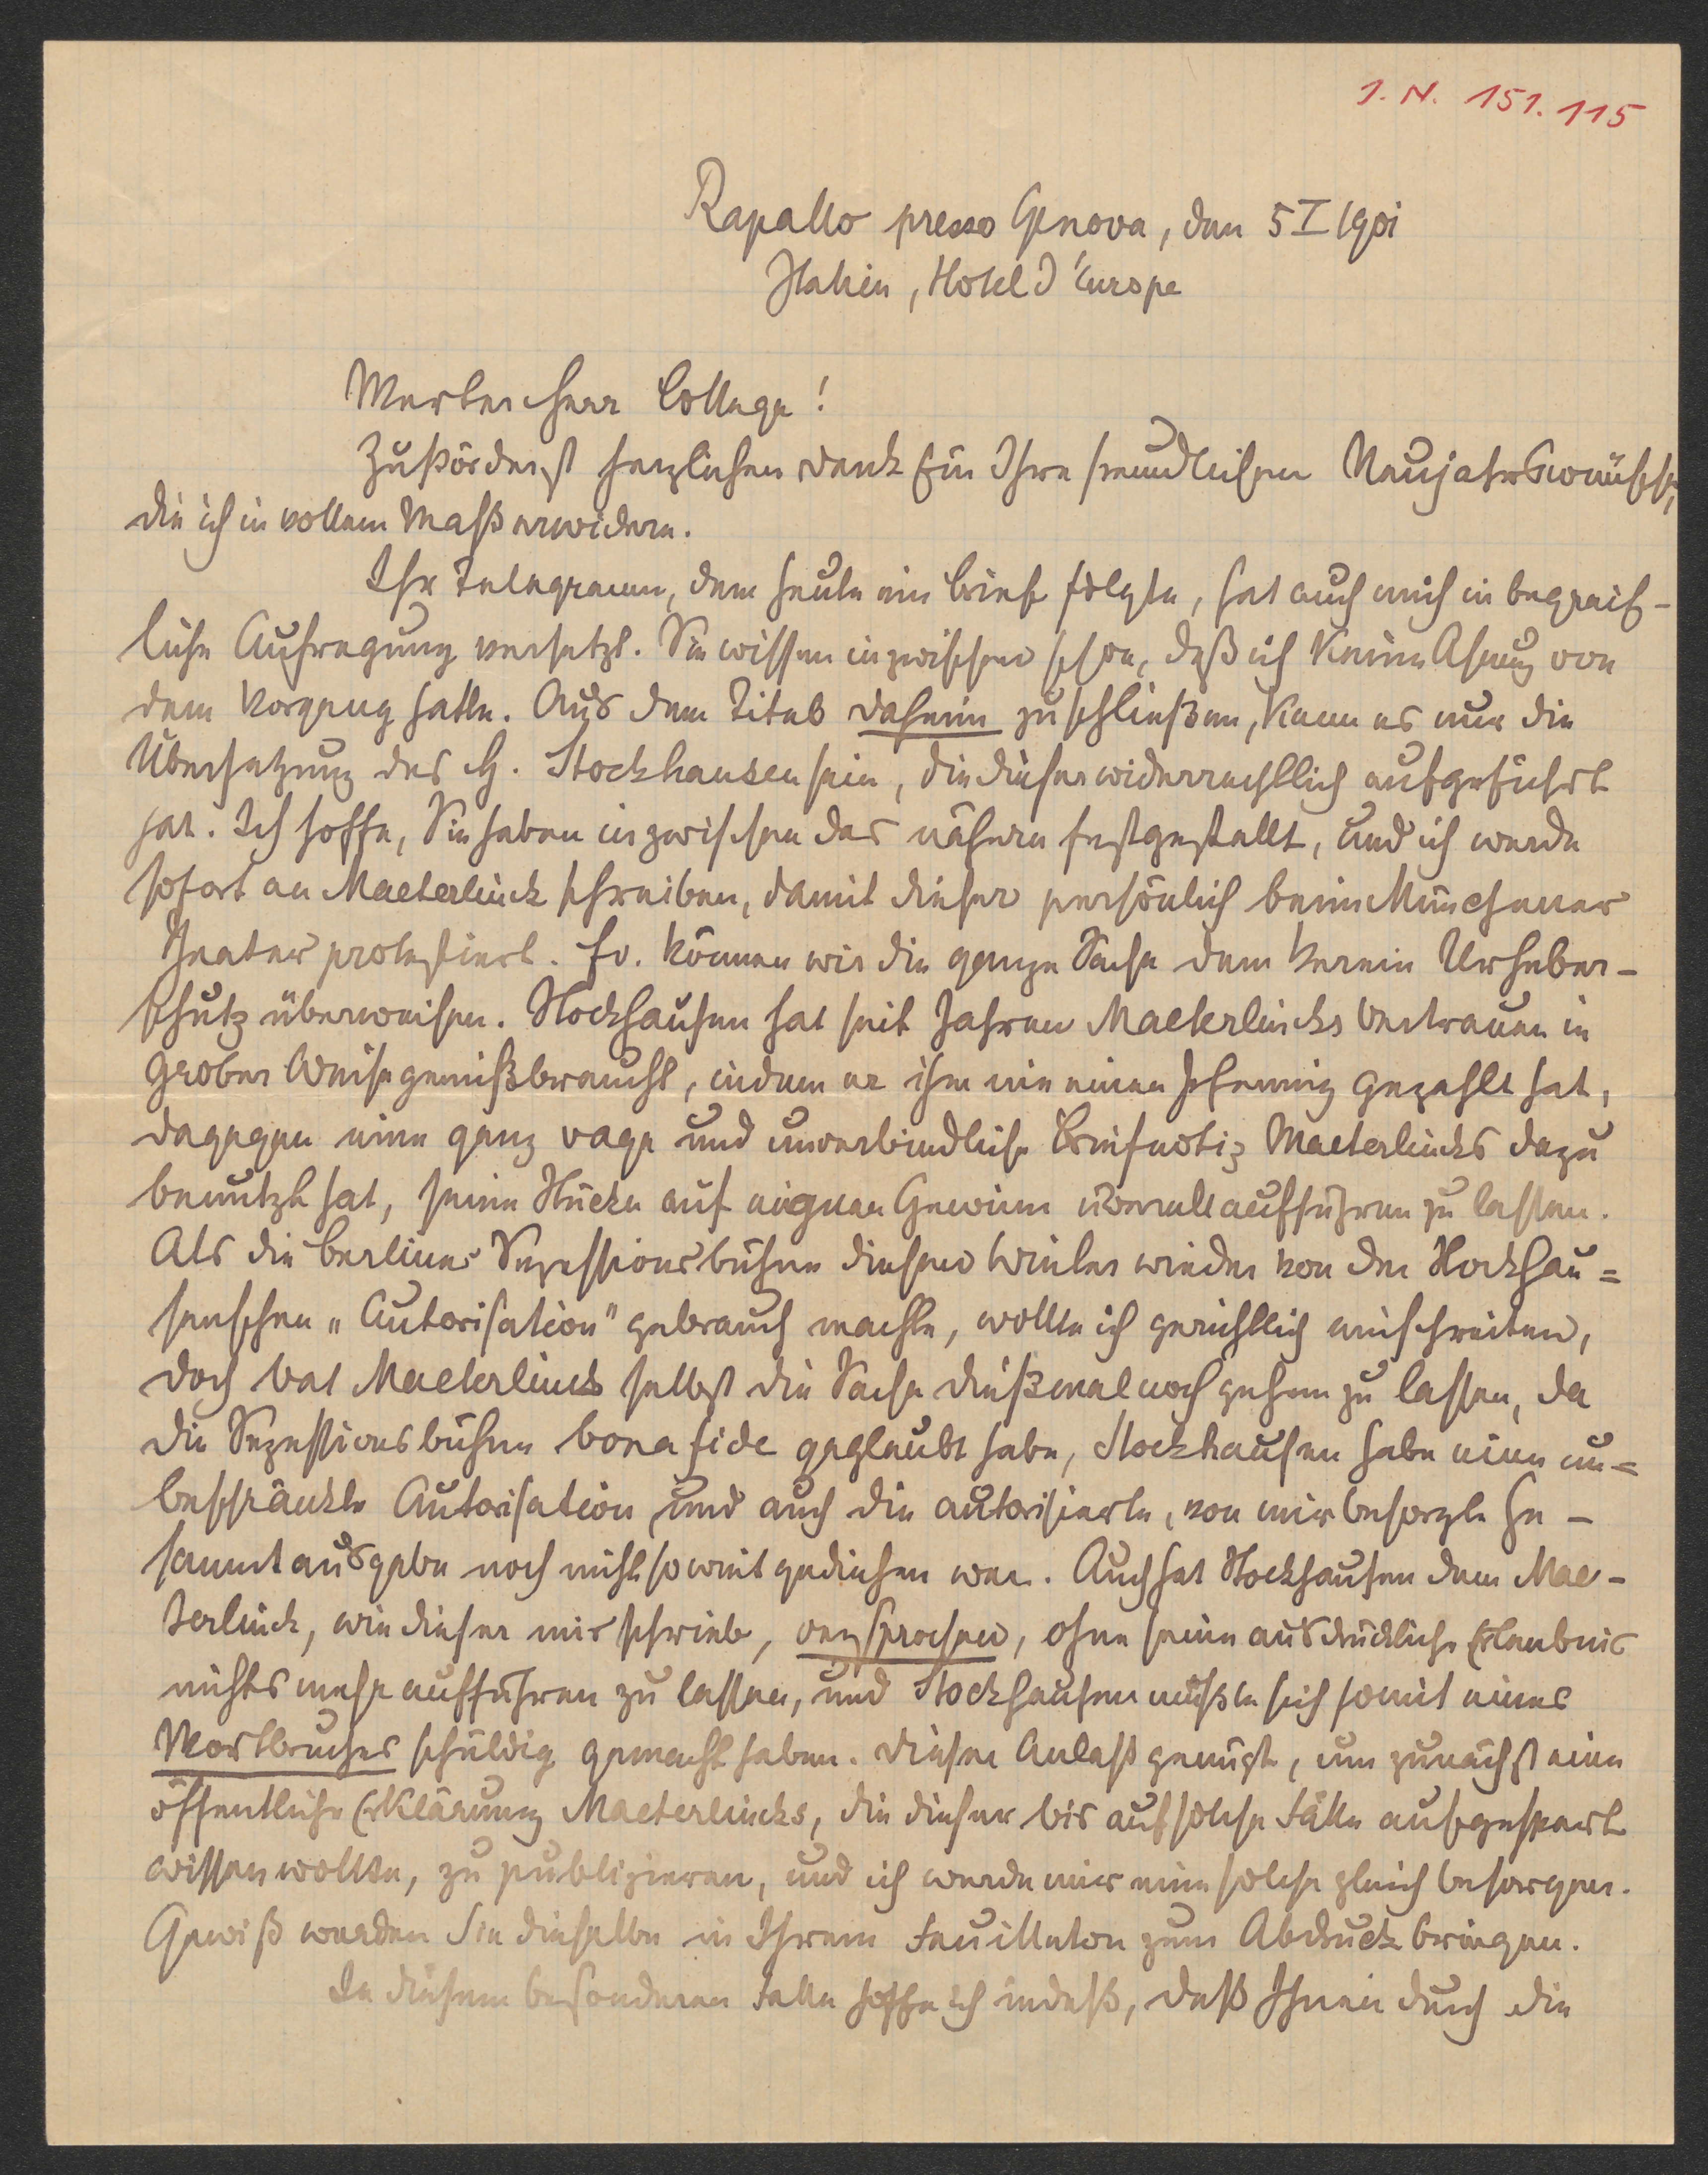 I. N. 151.115
Rapallo presso Genova, den 5 I 1901
Italien, Hotel d'Europe
Werter Herr College!
Zuvörderst herzlichen Dank für Ihre freundlichen Neujahrswünsche,
die ich in vollem Maß erwidere.
Ihr Telegramm, dem heute ein Brief folgte, hat auch mich in begreif-
liche Aufregung versetzt. Sie wissen inzwischen schon, daß ich keine Ahnung von
dem Vorgang hatte. Aus dem Titel daheim zu schließen, kann es nur die
Übersetzung des H. Stockhausen sein, die dieser widerrechtlich aufgeführt
hat. Ich hoffe, Sie haben inzwischen das nähere festgestellt, und ich werde
sofort an Maeterlinck schreiben, damit dieser persönlich beim Münchener
Theater protestiert. Ev. können wir die ganze Sache dem Verein Urheber-
schutz überweisen. Stockhausen hat seit Jahren Maeterlincks Vertrauen in
grober Weise gemißbraucht, indem er ihm nie einen Pfennig gezahlt hat,
dagegen eine ganz vage und unverbindliche Briefnotiz Maeterlincks dazu
benutzt hat, seine Stücke auf eignen Gewinn überall aufführen zu lassen.
Als die Berliner Sezessionsbühne diesen Winter wieder von der Stockhau=
senschen „Autorisation" gebrauch machte, wollte ich gerichtlich einschreiten,
doch bat Maeterlinck selbst die Sache dießmal noch gehen zu lassen, da
die Sezessionsbühne bona fide geglaubt habe, Stockhausen habe eine un=
beschränkte Autorisation und auch die autorisierte, von mir besorgte Ge-
samtausgabe noch nicht so weit gediehen war. Auch hat Stockhausen dem Mae-
terlinck, wie dieser mir schrieb, versprochen, ohne seine ausdrückliche Erlaubnis
nichts mehr aufführen zu lassen, und Stockhausen müßte sich somit eines
Wortbruches schuldig gemacht haben. Dieser Anlaß genügt, um zunächst eine
öffentliche Erklärung Maeterlincks, die dieser bis auf solche Fälle aufgespart
wissen wollte, zu publizieren, und ich werde mir eine solche gleich besorgen.
Gewiß werden Sie dieselbe in Ihrem Feuilleton zum Abdruck bringen.
In diesem besonderen Falle hoffe ich indeß, daß Ihnen durch die